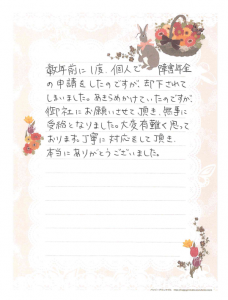 数年前に1度、個人で障害年金
の申請をしたのですが、却下されて
しまいました。あきらめかけていたのですが、
御社にお願いさせて頂き、無事に
受給となりました。大変有難く思って
おります。丁寧に対応をして頂き、
本当にありがとうございました。